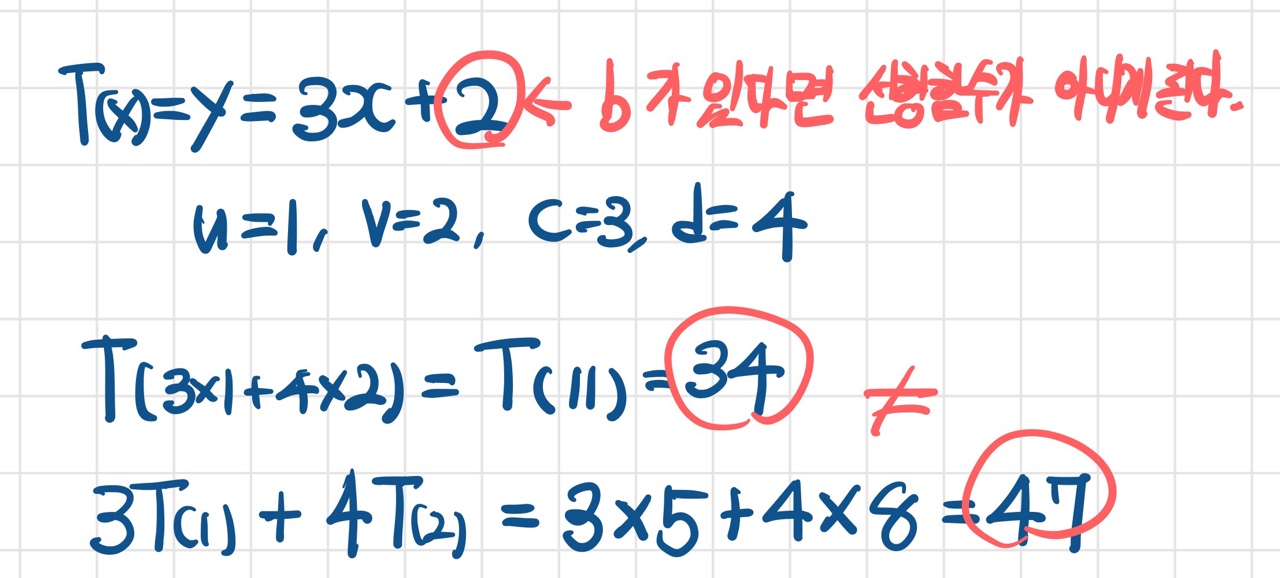 T(x)=y=3x+2 ← b가 있다면 선형함수가 아니게 된다.
u=1, v=2, c=3, d=4
T(3×1+4×2) = T(11) = 34 ≠
3T(1) + 4T(2) = 3×5+4×8 = 47